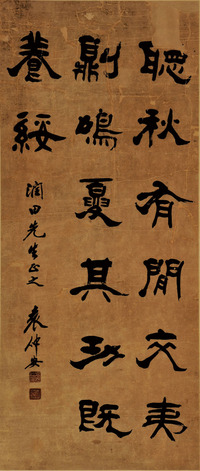 聽秋有閒交夷
則鳴夏其功既
養綏
润田先生正之
袁仲安